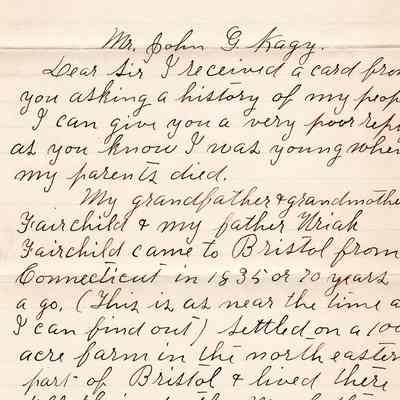 Mr. John G. Kagy.
Dear Sir I received a card from
you asking a history of my peop
I can give you a very poor reply
as you know I was young when
my parents died.
My grandfather & grandmothe
Fairchild & my father Uriah
Fairchild came to Bristol from
Connecticut in 1835 or 70 years
ago. (This is as near the time a
I can find out) settled on a 100
acre farm in the north eastern
part of Bristol & lived there